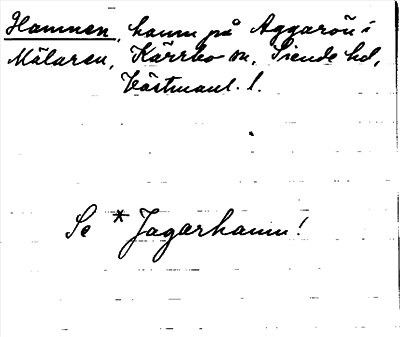 Hamnen, hamn på Aggarön i
Mälaren, Kärrbo sn, Siende hd,
Västmanl. l.
Se *Jagarhamn!